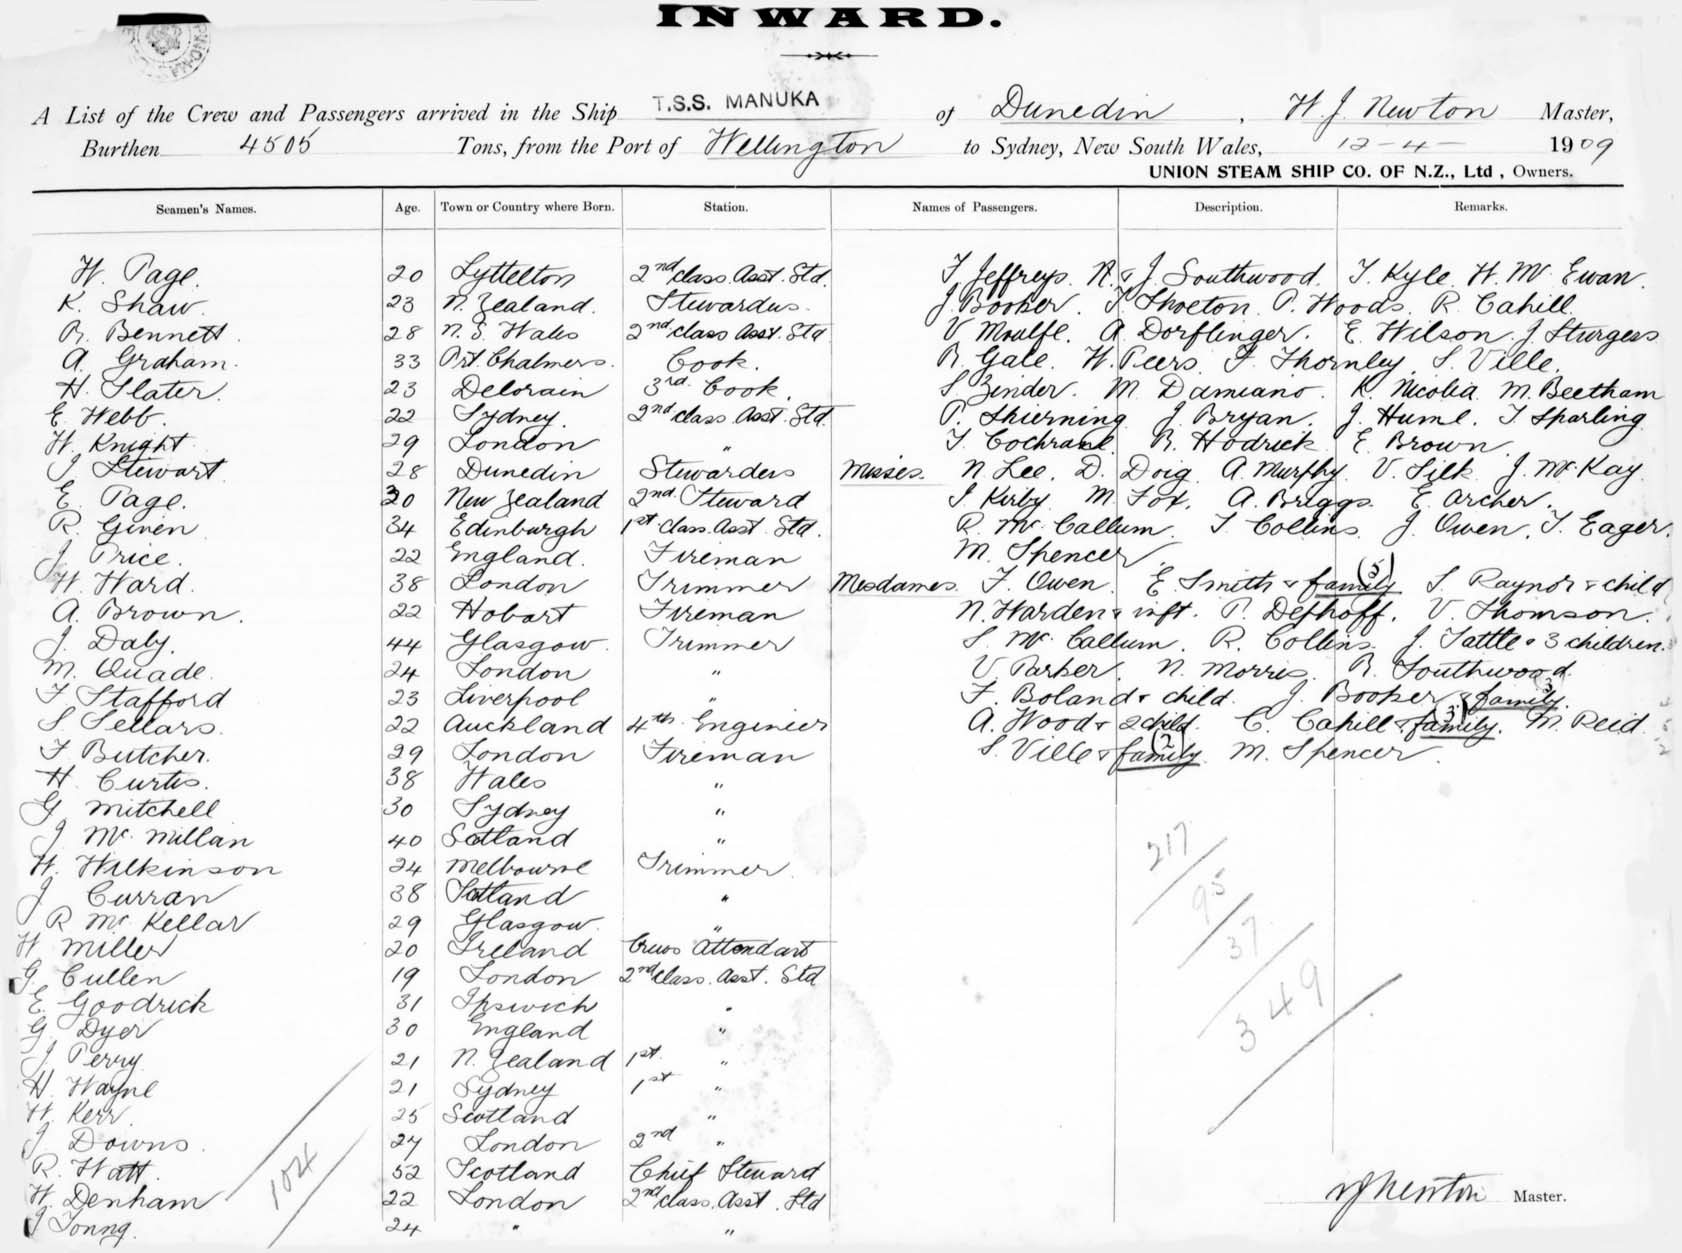 INWARD.
A List of the Crew and Passengers arrived in the Ship T.S.S. MANUKA of Dunedin, W. J. Newton Master,
Burthen 4505 Tons, from the Port of Wellington to Sydney, New South Wales, 12-4- 1909
UNION STEAM SHIP CO. OF N.Z., Ltd, Owners.
Seamen's Names. Age. Town or Country where Born. Station. Names of Passengers. Description. Remarks.
W. Page. 20 Lyttelton 2nd class Asst. Std. T Jeffreys. N. & J. Southwood. T. Kyle. W. McEwan.
K. Shaw. 23 N. Zealand. Stewardess. J. Booker. T. Shoeton. P. Woods. R. Cahill.
R. Bennett. 28 N. S. Wales 2nd class Asst. Std V A. Dorflinger. E. Wilson. J. Sturgess
A. Graham. 33 Prt. Chalmers. Cook. R. Gale. W. Peers. F. Thornley. S. Ville.
H. Slater. 23 Delorain 3rd. Cook. S. Zinder. M. Damiano. K. Nicolia M. Beetham
E. Webb. 22 Sydney. 2nd class Asst Std. P. Shierning J. Bryan. J. Hume. T Sparling
W. Knight 29 London " T. Cochrane. R. Hodrick E. Brown.
J. Stewart. 28 Dunedin Stewardess Misses. N. Lee. D. Doig. A. Murphy. V. Silk. J. McKay.
E. Page. 30 New Zealand 2nd. Steward J Kirby. M. Fox. A. Briggs. E. Archer.
R. Given 34 Edinburgh 1st. Class. Asst. Std. R. McCallum. T Collins. J. Owen. T. Eager.
J. Price. 22 England. Fireman M. Spencer.
W. Ward. 38 London Trimmer Mesdames. F. Owen. E. Smith & family (5) S. Raynor & child
A. Brown. 22 Hobart Fireman N. Harden & inft. P. Delhoff. V. Thomson.
J. Daly. 44 Glasgow. Trimmer S. McCallum. R. Collins. J. Tattle & 3 children.
M. Quade. 24 London " V. Parker. N. Morris. R. Southwood.
F. Stafford 23 Liverpool " F. Boland & child. J. Booker & family (3).
S. Sellars. 22 Auckland 4th. Engineer A. Wood & 2 child. C. Cahill & family (3). M. Reid.
F. Butcher. 29 London Fireman S. Ville & family (2). M. Spencer.
H. Curtis. 38 Wales "
G. Mitchell 30 Sydney "
J. McMillan 40 Scotland "
W. Wilkinson 24 Melbourne Trimmer.
J. Curran 38 Scotland "
R McKellar 29 Glasgow. "
W. Miller 20 Ireland Crews Attendant
G. Cullen 19 London 2nd Class. Asst. Std
E. Goodrick 31 Ipswich "
G. Dyer 30 England "
J. Perry. 21 N. Zealand 1st. "
H. Wayne 21 Sydney 1st "
W. Kerr. 25 Scotland "
J. Downs. 27 London 2nd "
R. Watt. 52 Scotland Chief Steward
W. Denham 22 London 2nd class. Asst. Std
J Tonng. 24 " "
104
217
95
37
349
W J Newton Master.